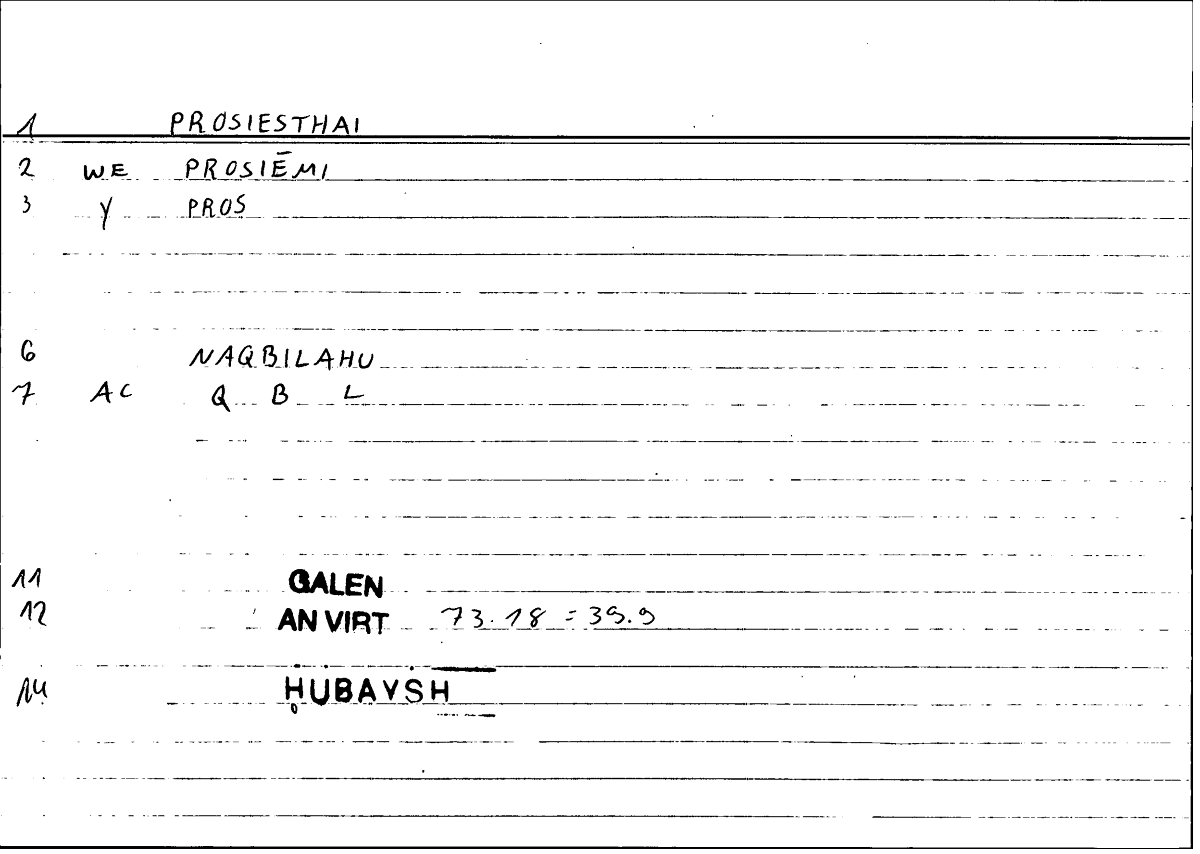 1 PROSIESTHAI
2 WE PROSIĒMI
3 Y PROS
6 NAQBILAHU
7 AC Q B L
11 GALEN
12 AN VIRT 73.18 = 39.9
14 ḤUBAYSH